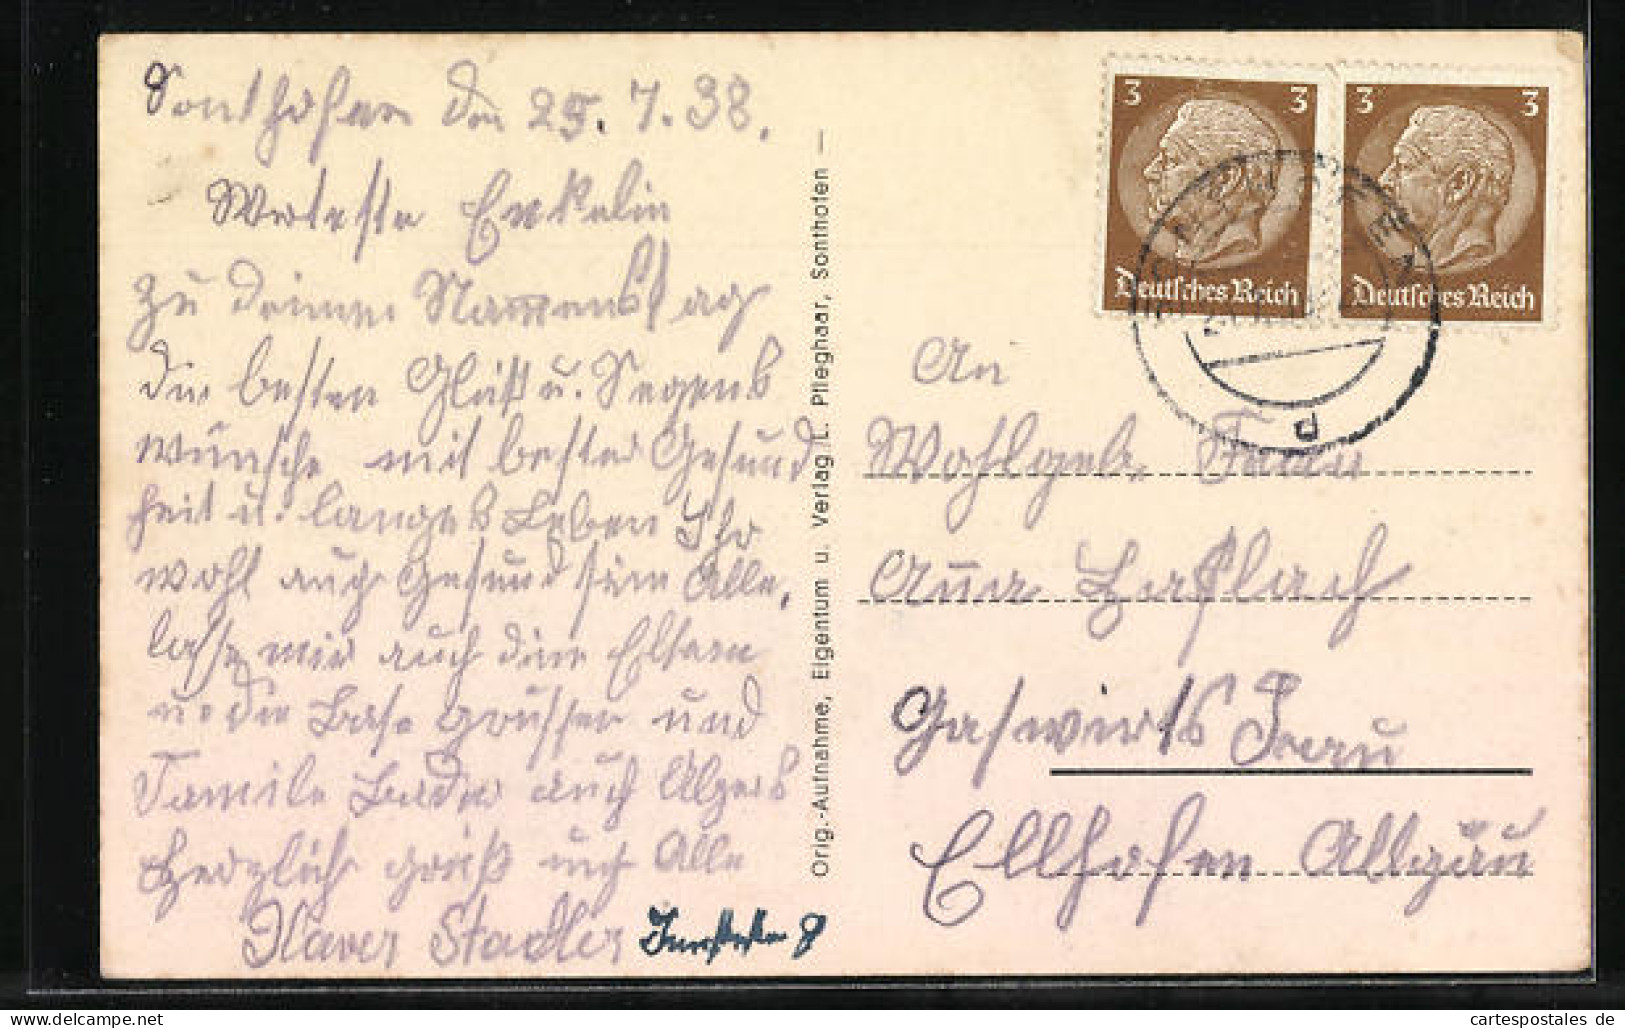 Sonthofen den 25. 7. 38.
Werteste Enkelin
zu deinem Namenstag
die besten Glück u. Segens
wünsche mit bester Gesund
heit u. langes Leben Ihr
wohl auch Gesund sein Alle,
lasse mir auch dein Eltern
u die Base grüssen und
Familie Bader auch Algers
Herzlich grüß uch Alle
Xaver Stadler
Orig.-Aufnahme, Eigentum u. Verlag L. Pfleghaar, Sonthofen —
3 3
Deutsches Reich
3 3
Deutsches Reich
d
An
Wohlgeb. Frau
Anna Haslach
Gastwirts Frau
Ellhofen Allgäu
cartespostales de